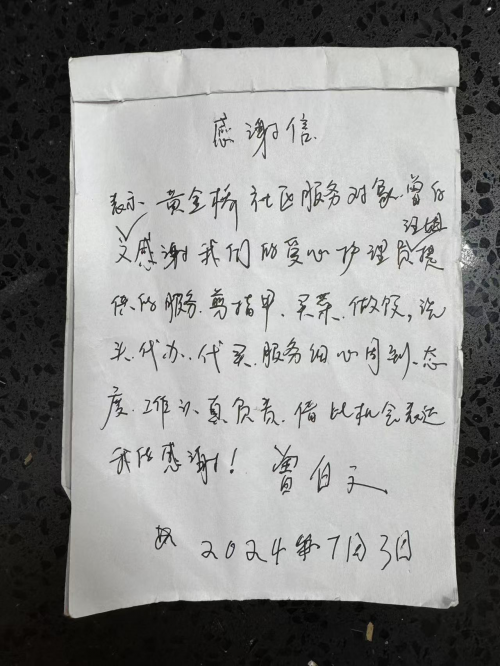 感谢信
表示 黄金桥社区服务对象.曾自
文感谢我们的爱心护理员提
供的服务.剪指甲.买菜.做饭,洗
头.代办.代买.服务细心周到.态
度.工作认真负责.借此机会表达
我的感谢! 曾自文
2024年7月3日